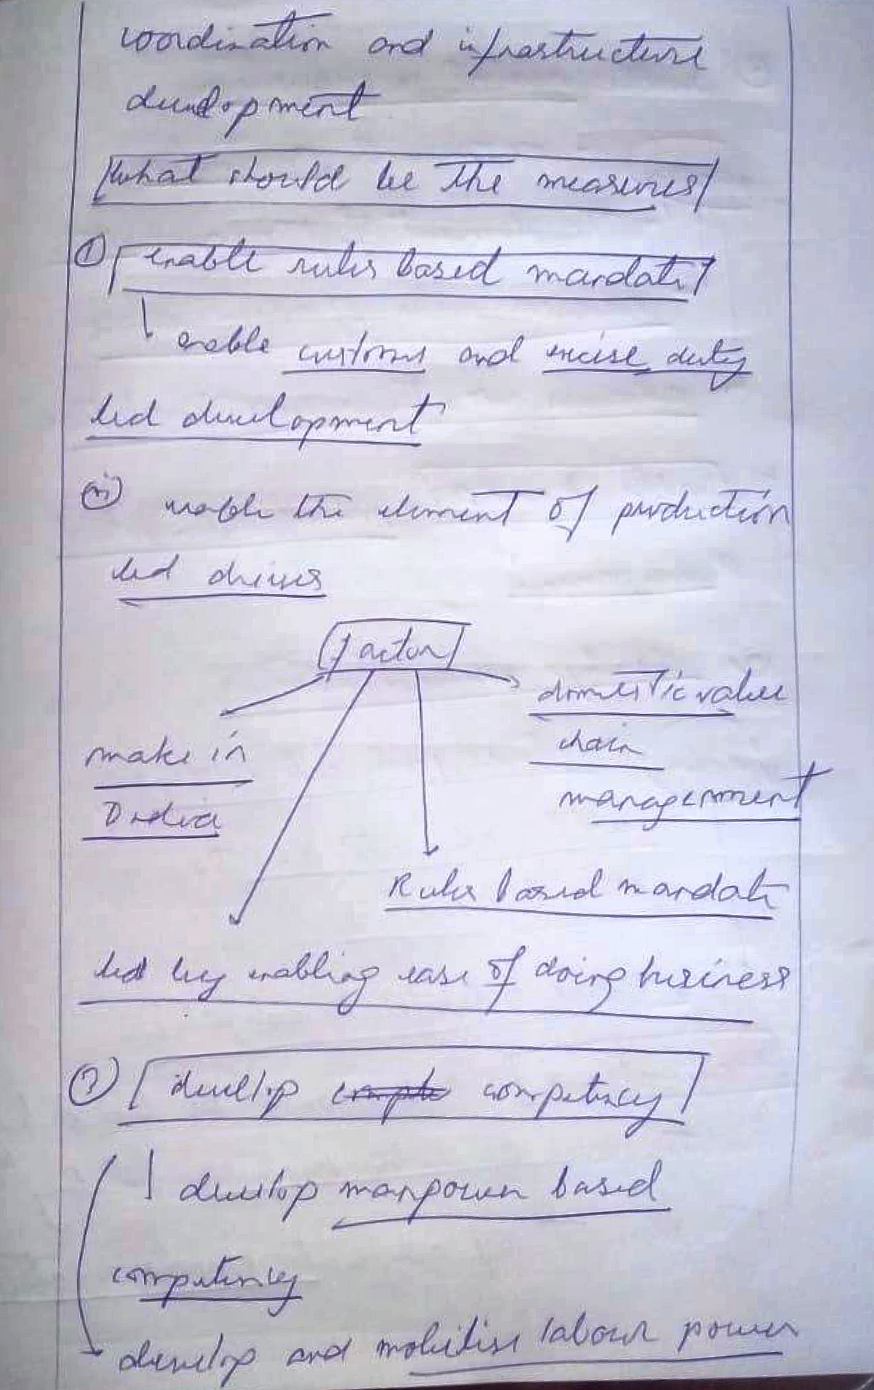 coordination and infrastructure
development
What should be the measures
① enable rules based mandate
enable customs and excise duty
led development
enable the element of production
led drives
factor
make in
India
domestic value
chain
management
Rules based mandate
led by enabling ease of doing business
develop competency
develop manpower based
competency
develop and mobilise labour power